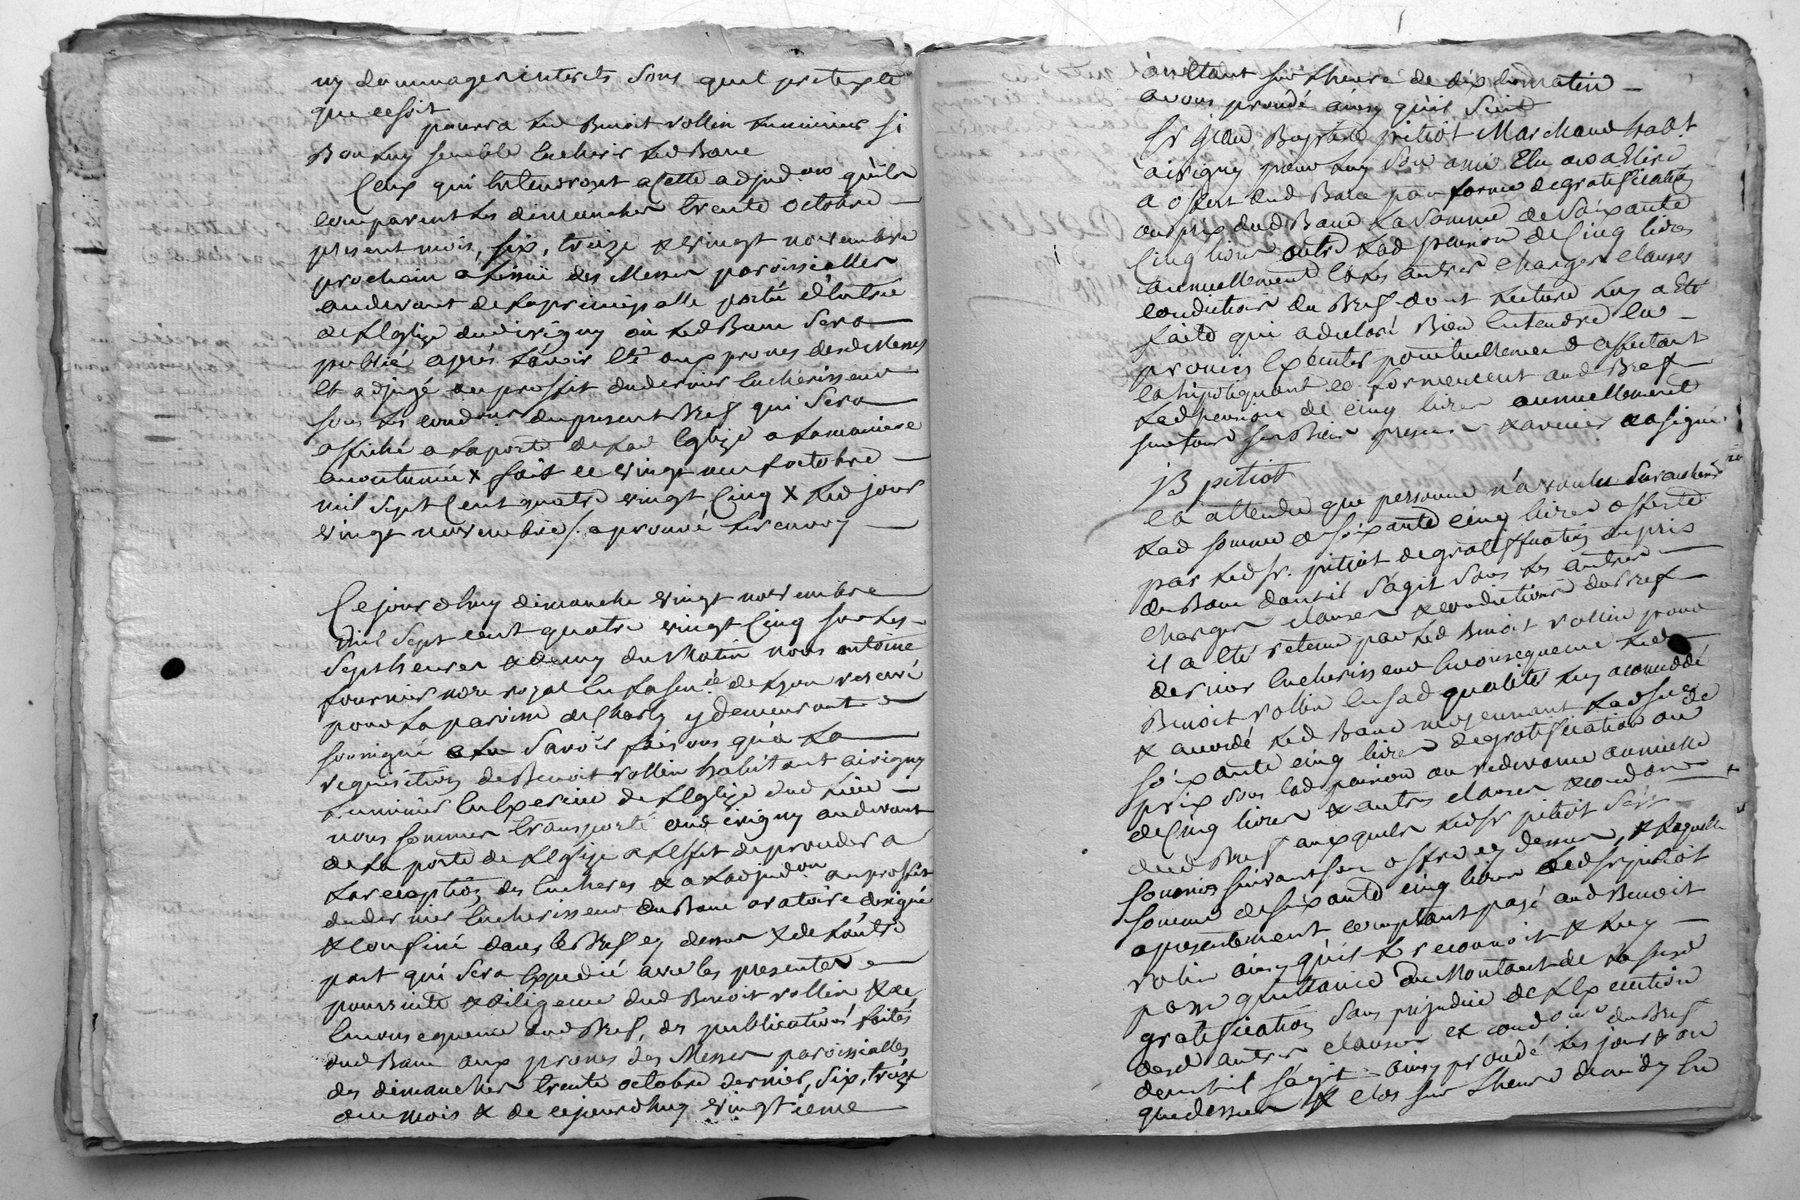 ny dommages interets sous quel pretexte
que ce soit
pourra led Benoit rollin luminier si
Bon luy semble encherir led Banc
Ceux qui entendront a Cette adjudon quils
comparent les dimanches trente octobre
present mois, six, treize & vingt novembre
prochain a lissüe des Messes paroissialles
audevant de la principalle porte d'Entrée
de l'Eglize dud irigny où led Banc sera
publié aprés l'avoir eté aux prones desd Messes
et adjugé au proffit du dernier encherisseur
sous les condons du present Bref qui sera
affiché a la porte de lad Eglize a la maniere
accoutumée & fait ce vingt neuf octobre
mil sept Cent quatre vingt Cinq & led jour
vingt novembre /. aprouvé les renvoy
Ce jourd'huy dimanche vingt novembre
mil sept cent quatre vingt Cinq sur les
sept heures & demy du Matin nous antoine
fournier nore royal en la senéé de Lyon reservé
pour la paroisse de Charly y demeurant
soussigné savoir faisons qu'a la
requisition de Benoit rollin habitant a irigny
luminier en Exercice de l'Eglize dud lieu
nous sommes transporté aud irigny audevant
de la porte de l'Eglize a l'Effet de proceder a
la reception des Encheres & a l'adjudon au proffit
du dernier Encherisseur du Banc oratoire designé
& confiné dans le Bref cy dessus & de l'autre
part qui sera Expedié avec les presentes
poursuite & diligence dud Benoit rollin & de
Enconsequence dud Bref, des publications faites
dud Banc aux prones des Messes paroissialles
des dimanches trente octobre dernier, six, treize
du mois & de cejourd'huy vingtieme
avons procédé ainsy qu'il suit
Sr jean Baptiste pitiot Marchand habt
a irigny pour luy son ami Elu
a offert dud Banc par forme de gratification
au prix dud Banc la somme de soixante
Cinq livres outre lad pension de Cinq livres
annuellement & les autres charges clauses
conditions du Bref dont lecture luy a eté
faite qui a declaré Bien Entendre
promis Executer ponctuellement & affectant
& hipotequant conformement aud Bref
lad pension de cinq livres annuellement
sur tous ses Biens presents & avenir & a signé
JB pitiot
Et attendu que personne n'a voulu surencherir
lad somme de soixante cinq livres offerte
par led Sr. pitiot de gratification au prix
du Banc dont il s'agit sous les autres
charges clauses & conditions du Bref
il a eté retenu par led Benoit rollin pour
dernier Encherisseur Enconsequence led
Benoit rollin en sad qualité luy a concedé
& accordé led Banc moyennant lad somme de
soixante cinq livres de gratification au
prix sous lad pension ou redevance annuelle
de Cinq livres & autres clauses & condons
dud Bref auxquels led Sr pitiot s'est
soumis suivant son offre cy dessus, & laquelle
somme de soixante cinq livres led Sr pitiot
a presentement comptant payé aud Benoit
rolin ainsy qu'il le reconnoit & luy
passe quittance du Montant de lad
gratification sans prejudice de l'Execution
desd autres clauses et condons du Bref
dont il s'agit. ainsy procédé les jour & an
que dessus & clos sur l'heure de midy En